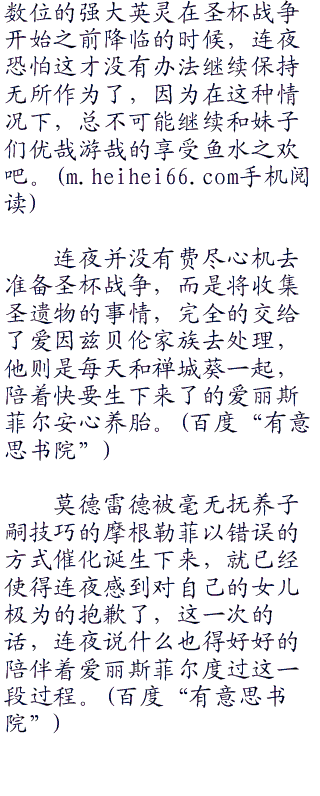 数位的强大英灵在圣杯战争
开始之前降临的时候，连夜
恐怕这才没有办法继续保持
无所作为了，因为在这种情
况下，总不可能继续和妹子
们优哉游哉的享受鱼水之欢
吧。(m.heihei66.com手机阅
读)
连夜并没有费尽心机去
准备圣杯战争，而是将收集
圣遗物的事情，完全的交给
了爱因兹贝伦家族去处理，
他则是每天和禅城葵一起，
陪着快要生下来了的爱丽斯
菲尔安心养胎。(百度“有意
思书院”)
莫德雷德被毫无抚养子
嗣技巧的摩根勒菲以错误的
方式催化诞生下来，就已经
使得连夜感到对自己的女儿
极为的抱歉了，这一次的
话，连夜说什么也得好好的
陪伴着爱丽斯菲尔度过这一
段过程。(百度“有意思书
院”)